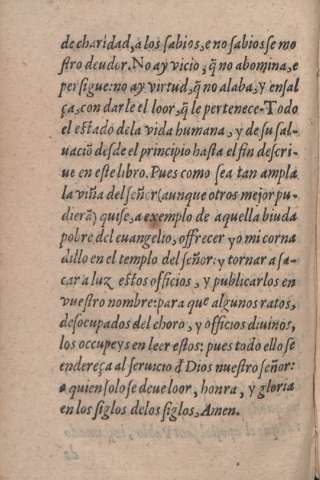 de charidad, a los sabios, e no sabios se mo
stro deudor. No ay vicio, q̃ no abomina, e
persigue: no ay virtud, q̃ no alaba, y ensal
ça, con darle el loor, q̃ le pertenece. Todo
el estado dela vida humana, y de su sal-
uaciõ desde el principio hasta el fin descri-
ue en este libro. Pues como sea tan ampla
la viña del señor (aunque otros mejor pu-
dierã) quise, a exemplo de aquella biuda
pobre del euangelio, offrecer yo mi corna
dillo en el templo del señor: y tornar a sa-
car a luz estos officios, y publicarlos en
vuestro nombre: para que algunos ratos,
desocupados del choro, y officios diuinos,
los occupeys en leer estos: pues todo ello se
endereça al seruicio đ Dios nuestro señor:
a quien solo se deue loor, honra, y gloria
en los siglos delos siglos, Amen.